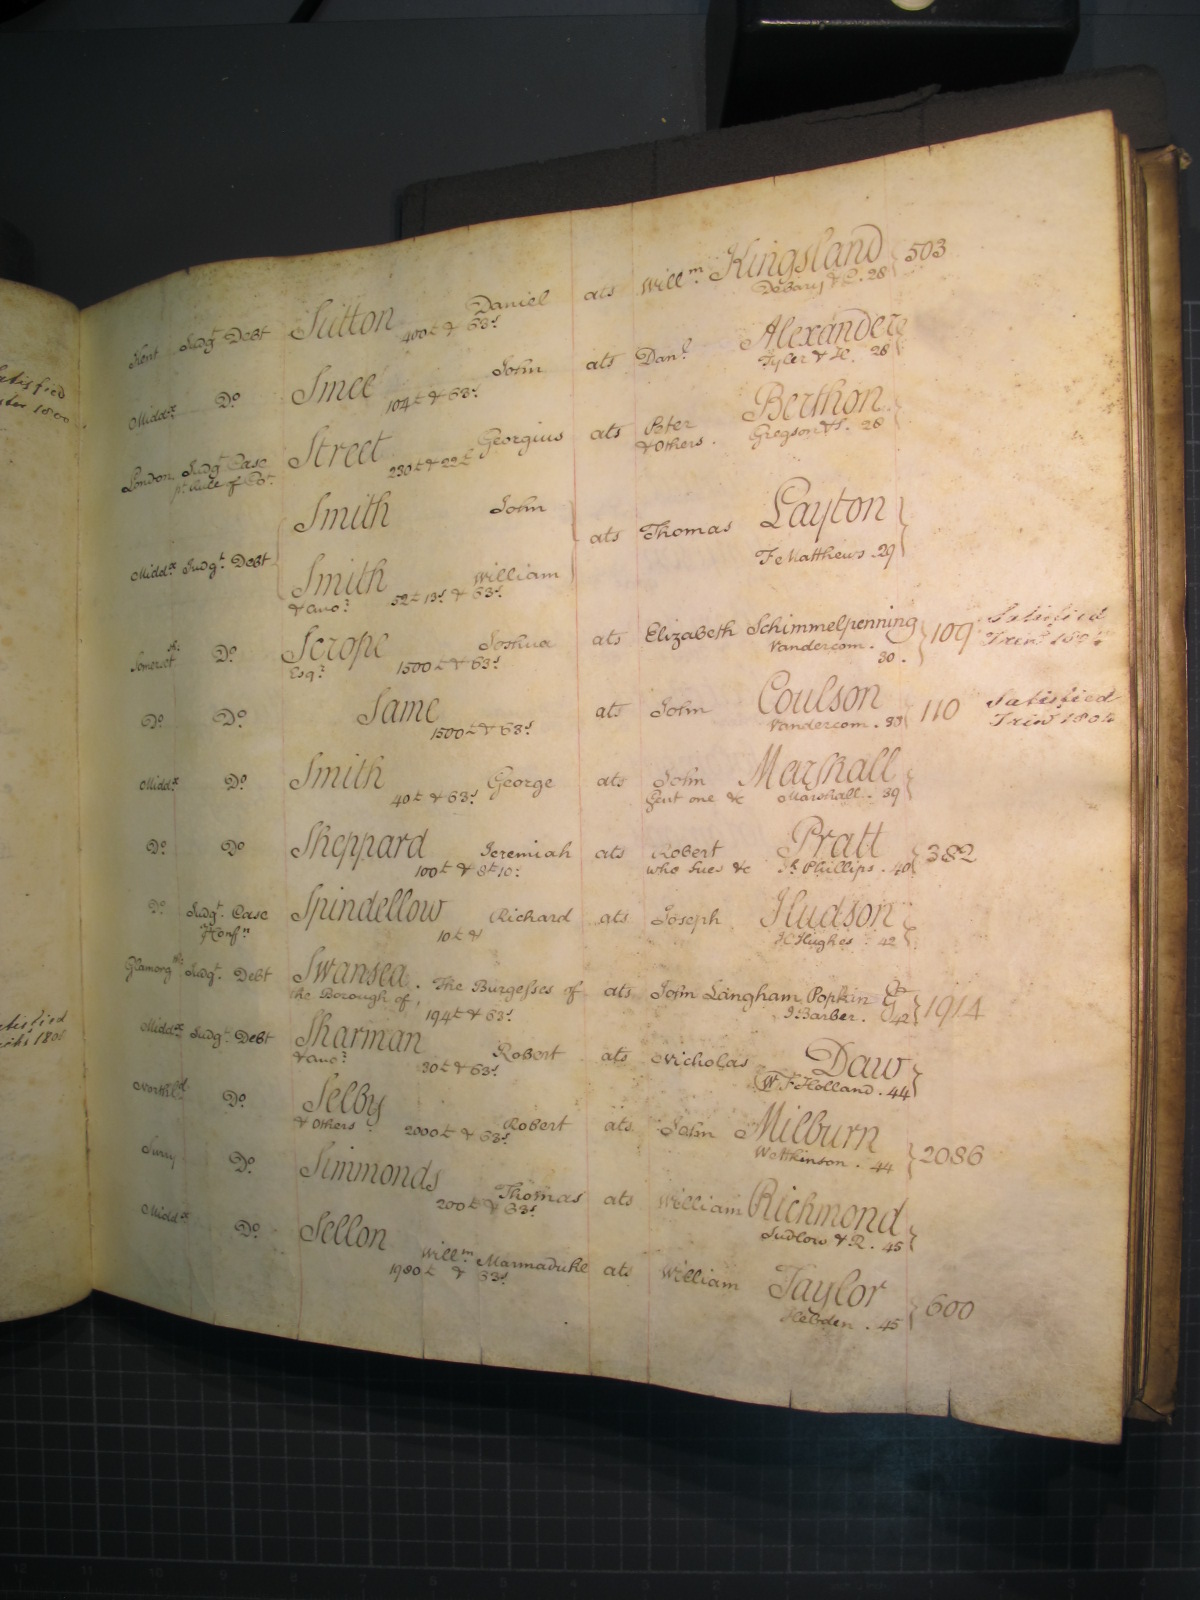 Kent Judgt Debt Sutton Daniel ats Willm Kingsland 503
400£ & 63s DeBary & C. 28
Middx Do Smee John ats Danl Alexander
104£ & 63s Tyler & H. 28
London Judgt Case Street Georgius ats Peter Berthon
pr Rule of Cot 230£ & 22£ & Others. Gregson & S. 28
Smith John
Middx Judgt Debt ats Thomas Layton
Smith William T Matthews. 29
& ano: 52£ 13s & 63s
Somersetsh: Do Scrope Joshua ats Elizabeth Schimmelpenning 109 Satisfied
Esqr 1500£ & 63s Vandercom. 30. Trin:
Do Do Same ats John Coulson 110 Satisfied
1500£ & 63s Vandercom. 33 Trin: 1804
Middx Do Smith George ats John Marshall
40£ & 63s Gent one &c Marshall. 39
Do Do Sheppard Jeremiah ats Robert Pratt 382
100£ & 8£ 10s who sues &c Js Phillips. 40
Do Judgt Case Spindellow Richard ats Joseph Hudson
Confn 10£ & Hughes 42
Glamorgsh: Judgt Debt Swansea. The Burgesses of ats John Langham Popkin 1914
the Borough of, 194£ & 63s J. Barber. 42
Middx Judgt Debt Sharman Robert ats Nicholas Daw
& ano: 30£ & 63s W F Holland. 44
Northld Do Selby Robert ats John Milburn 2086
& Others 2000£ & 63s W Atkinson. 44
Surry Do Simmonds Thomas ats William Richmond
200£ & 63s Ludlow & R. 45
Middx Do Sellon Willm Marmaduke ats William Taylor 600
1980£ & 33s Hebden. 45